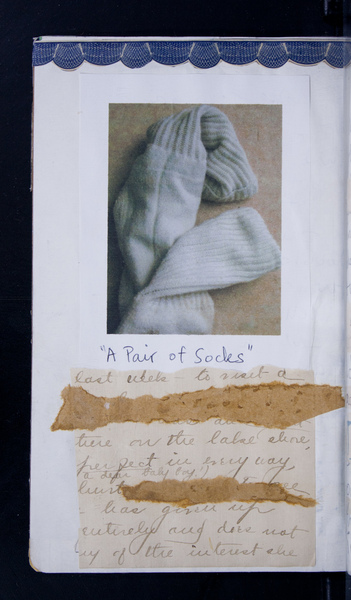 "A Pair of Socks"
last week - to visit a
ture on the lake shore,
perfect in every way
a dear baby boy!)
- has given up
entirely and does not
ny of the interest she